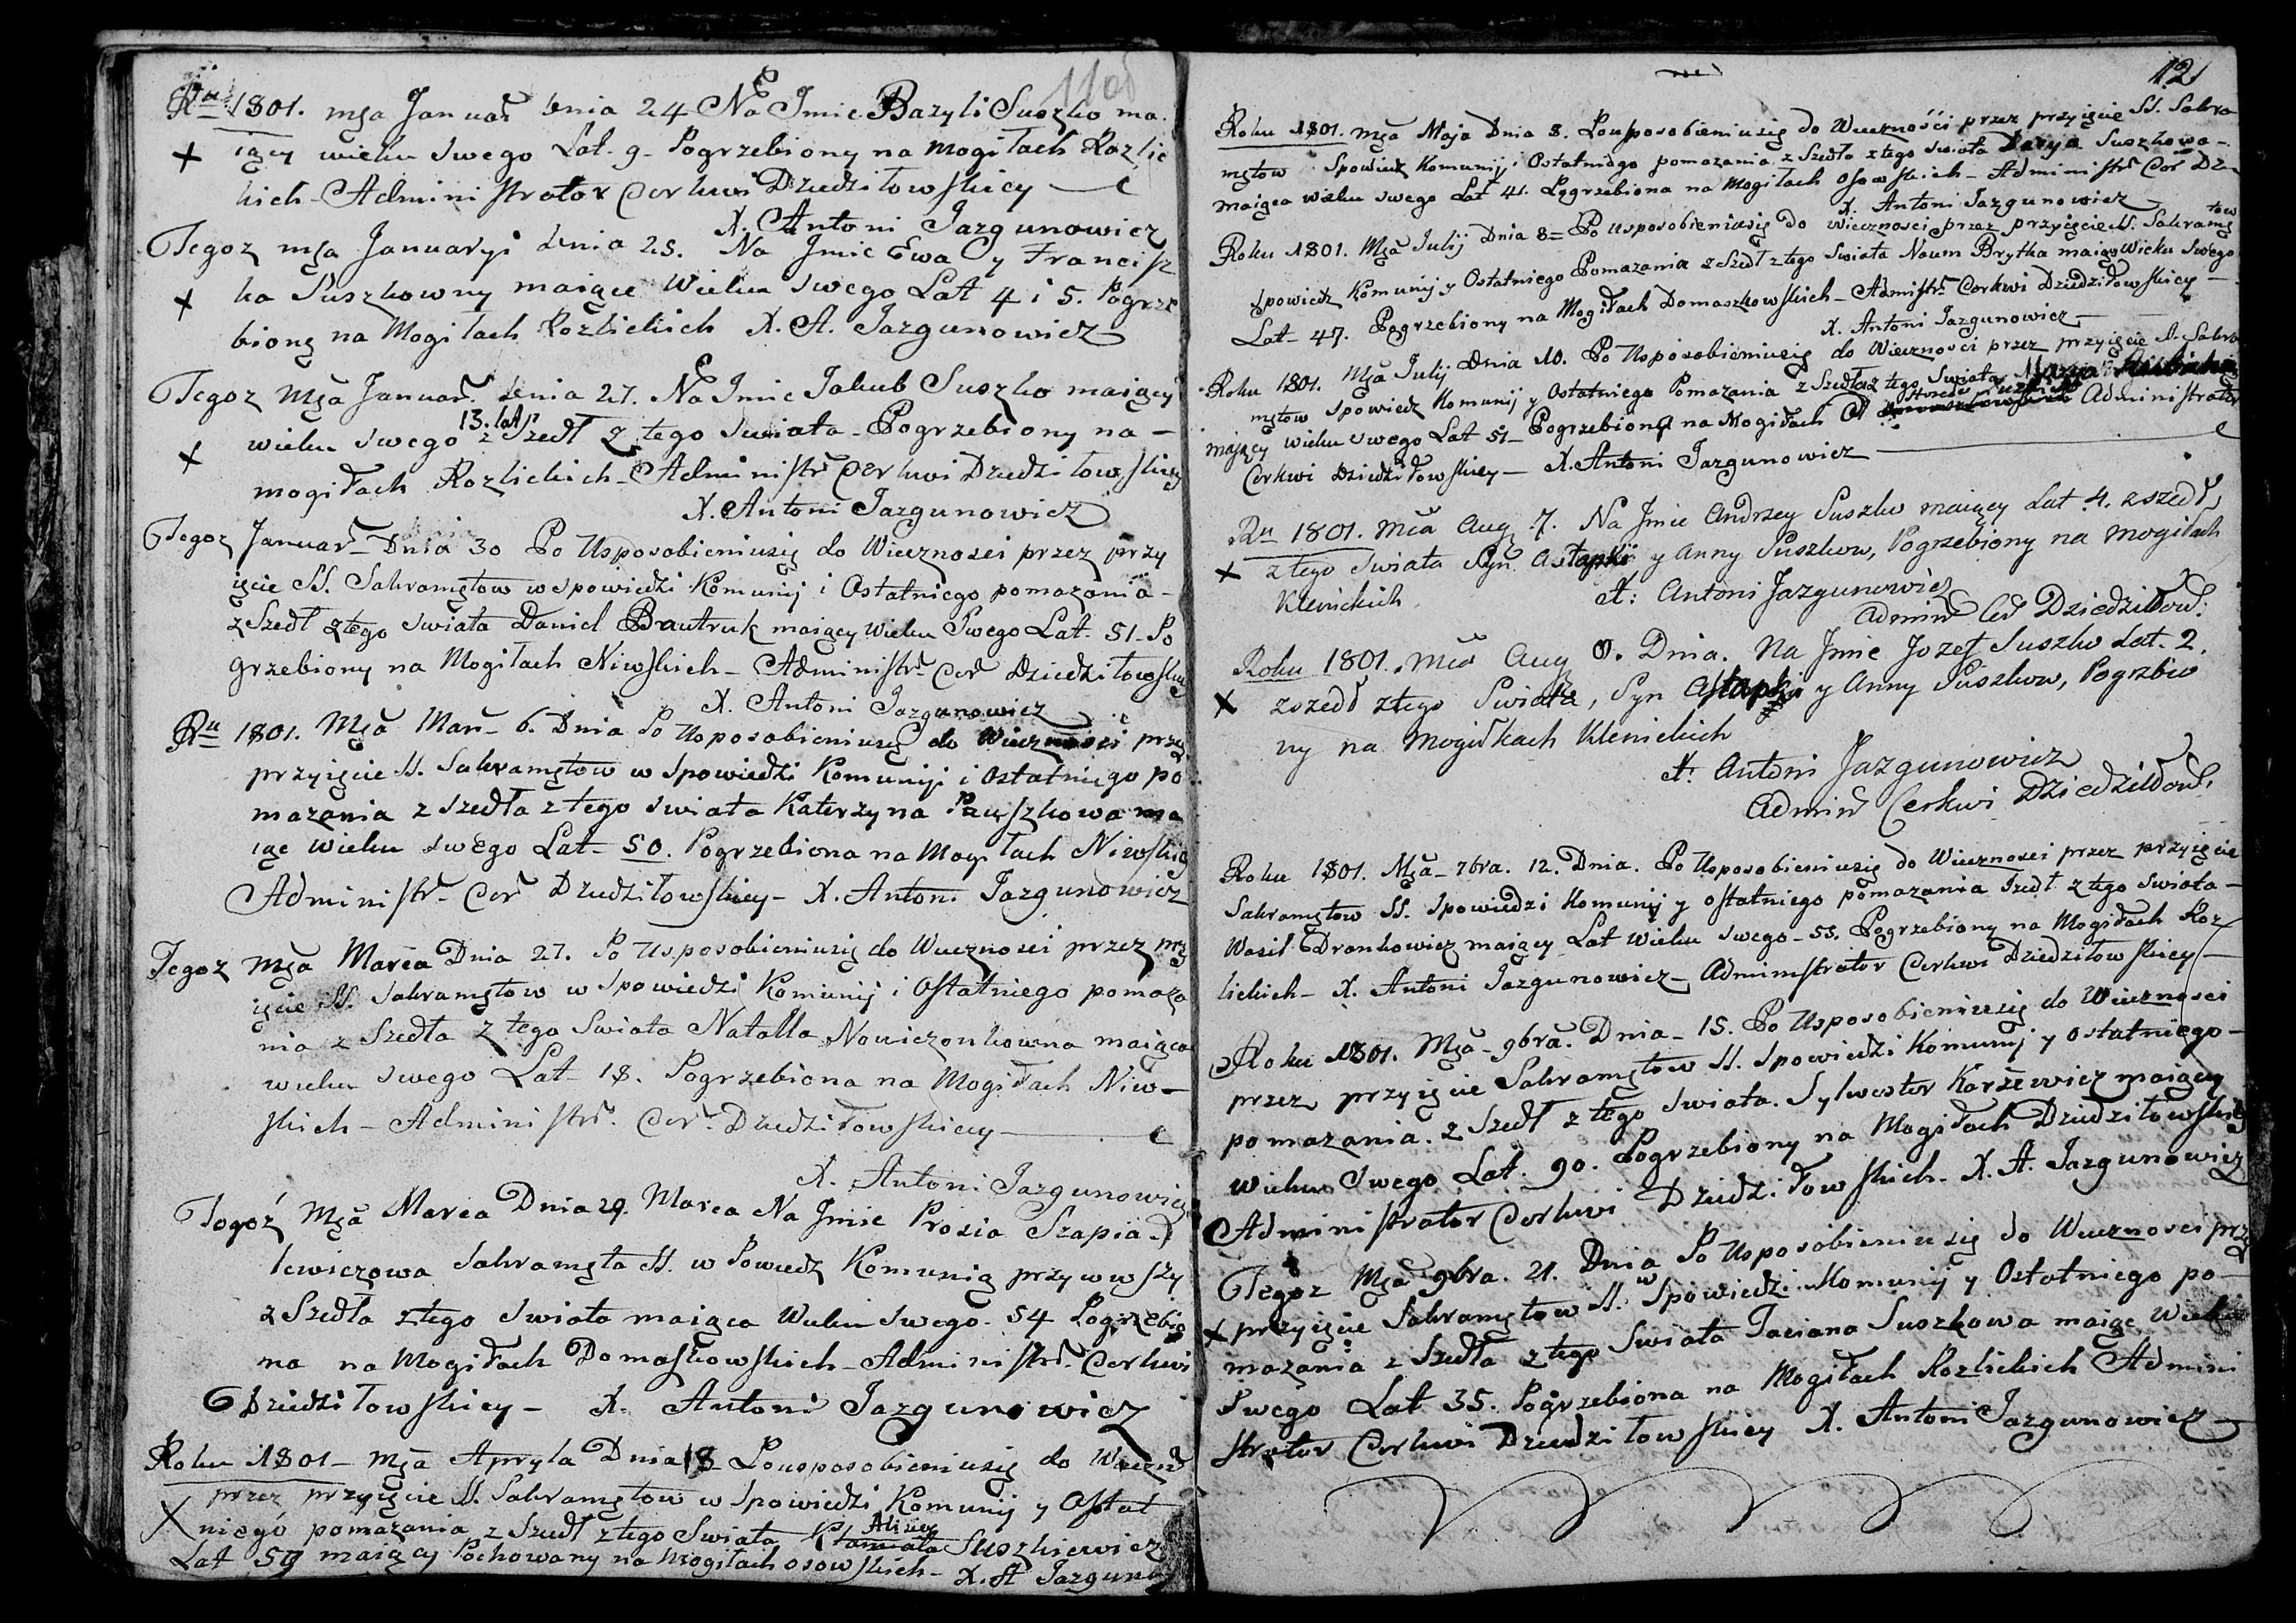 11об
Ru 1801. mca Januar dnia 24 Na Jmie Bazyli Suszko ma-
iący wieku swego Lat. 9. Pogrzebiony na Mogiłach Kozlic
kich - Administrator Cerkwi Dziedziłowskiey
X. Antoni Jazgunowicz
Tegoz mca Januaryi dnia 25. Na Jmie Ewa y Francisz
ka Suszkowny maiące Wieku swego Lat 4 i 5. Pogrze
bione na Mogiłach Kozlickich X. A. Jazgunowicz
Tegoz Mca Januar. dnia 27. Na Jmie Jakub Suszko maiący
wieku swego 13. lat z Szedł z tego swiata - Pogrzebiony na -
mogiłach Kozlickich - Administr Cerkwi Dziedziłowskiey
X. Antoni Jazgunowicz
Tegoz Januar - Dnia 30 Po Usposobieniusię do Wiecznosci przez przy
ięcie SS. Sakramętow w spowiedzi Komunij i Ostatniego pomazania -
z Szedł z tego swiata Daniel Bautruk maiący wieku Swego Lat - 51 - Po
grzebiony na Mogiłach Niwskich - Administr Cer Dziedziłowskiey
X. Antoni Jazgunowicz
Ru 1801. Mca Mar - 6. Dnia Po Usposobieniusię do Wiecznosci przez
przyięcie SS. Sakramętow w Spowiedzi Komunij i Ostatniego po
mazania z Szedła z tego swiata Katerzyna Pauszkowa ma
iąc wieku swego Lat - 50. Pogrzebiona na Mogiłach Niwskich
Administr - Cer Dziedziłowskiey - X. Antoni Jazgunowicz
Tegoz mca Marca Dnia 27. Po Usposobieniusię do Wiecznosci przez prz
ięcie SS. Sakramętow w Spowiedzi Komunij i Ostatniego pomaza
nia z Szedła z tego Swiata Natalla Nowiczonkowna maiąca
wieku swego Lat - 18. Pogrzebiona na Mogiłach Niw-
skich - Administr. Cer. Dziedziłowskiey
X. Antoni Jazgunowicz
Togoż Mca Marca Dnia 29. Marca Na Jmie Prosia Szapia-
lewiczowa Sakramęta SS. w Powiedz Komunią przywwszy
z Szedła z tego swiata maiąca Wieku swego - 54 Pogrzebio
na na Mogiłach Domaszkowskich - Administr. Cerkwi
Dziedziłowskiey - X. Antoni Jazgunowicz
Roku 1801 - Mca Apryla Dnia 18 - Po usposobieniusię do Wieczno
przez przyięcie SS. Sakramętow w Spowiedzi Komunij y Ostat
niego pomazania z Szedł z tego Swiata Alizey Suszkiewicz
Lat 59 maiący Pochowany na Mogiłach osowskich - X. A Jazguno
12
Roku 1801. mca Maja Dnia 8. Po usposobieniusię do Wieczności przez przyięcie SS. Sakra
mętow Spowiedz Komunij i Ostatniego pomazania z Szedła z tego swiata Darya Suszkowa -
maiąca wieku swego Lat 41. Pogrzebiona na Mogiłach Osowskich - Administr Cer Dz
X. Antoni Jazgunowicz
Roku 1801. Mca Julij Dnia 8 - Po Usposobieniusię do Wiecznosci przez przyięcie SS. Sakramętow
Spowiedz Komunij y Ostatniego Pomazania z Szedł z tego Swiata Naum Brytka maiący Wieku Swego
Lat - 47. Pogrzebiony na Mogiłach Domaszkowskich - Administr. Cerkwi Dziedziłowskiey -
X. Antoni Jazgunowicz
Roku 1801. Mca Julij Dnia 10. Po Usposobieniusię do Wiecznosci przez przyięcie SS. Sakra
mętow Spowiedz Komunij y Ostatniego Pomazania z Szedła z tego Swiata Marya
mający wieku swego Lat 51 - Pogrzebiona na Mogiłach Administrator
Cerkwi Dziedziłowskiey - X. Antoni Jazgunowicz
Ru 1801. Mca Aug 7. Na Jmie Andrzey Suszko maiący Lat 4. zszedł
z tego swiata Syn Astapki y Anny Suszkow, Pogrzebiony na mogiłach
Klenickich. X: Antoni Jazgunowicz
Admin Cer Dziedziłow:
Roku 1801. Mca Aug 8. Dnia. Na Jmie Jozef Suszko Lat. 2.
zszedł z tego Swiata, Syn Astapki y Anny Suszkow, Pogrzbio
ny na Mogiłkach Klenickich
X: Antoni Jazgunowicz
Admin Cerkwi Dziedziłow.
Roku 1801. Mca - 7bra. 12. Dnia. Po Usposobieniusię do Wiecznosci przez przyięcie
Sakramętow SS. Spowiedzi Komunij y ostatniego pomazania Szedł z tego swiata -
Wasil Drankowicz maiący Lat wieku swego - 55. Pogrzebiony na Mogiłach Koz
lickich - X. Antoni Jazgunowicz - Administrator Cerkwi Dziedziłowskiey -
Roku 1801. Mca - 9bra. Dnia - 15. Po Usposobieniusię do Wiecznosci
przez przyięcie Sakramętow SS. Spowiedzi Komunij y ostatniego -
pomazania. z Szedł z tego swiata. Sylwester Karżewicz maiący
wieku swego Lat. 90. Pogrzebiony na Mogiłach Dziedziłowskich
Administrator Cerkwi Dziedziłowskich - X. A. Jazgunowicz
Tegoz Mca 9bra. 21. Dnia Po Usposobieniusię do Wiecznosci prze
przyięcie Sakramętow SS. w Spowiedzi Komunij y Ostatniego po-
mazania z Szedła z tego Swiata Taciana Suszkowa maiąc Wieku
Swego Lat 35. Pogrzebiona na Mogiłach Kozlickich Admini
strator Cerkwi Dziedziłowskiey X. Antoni Jazgunowicz